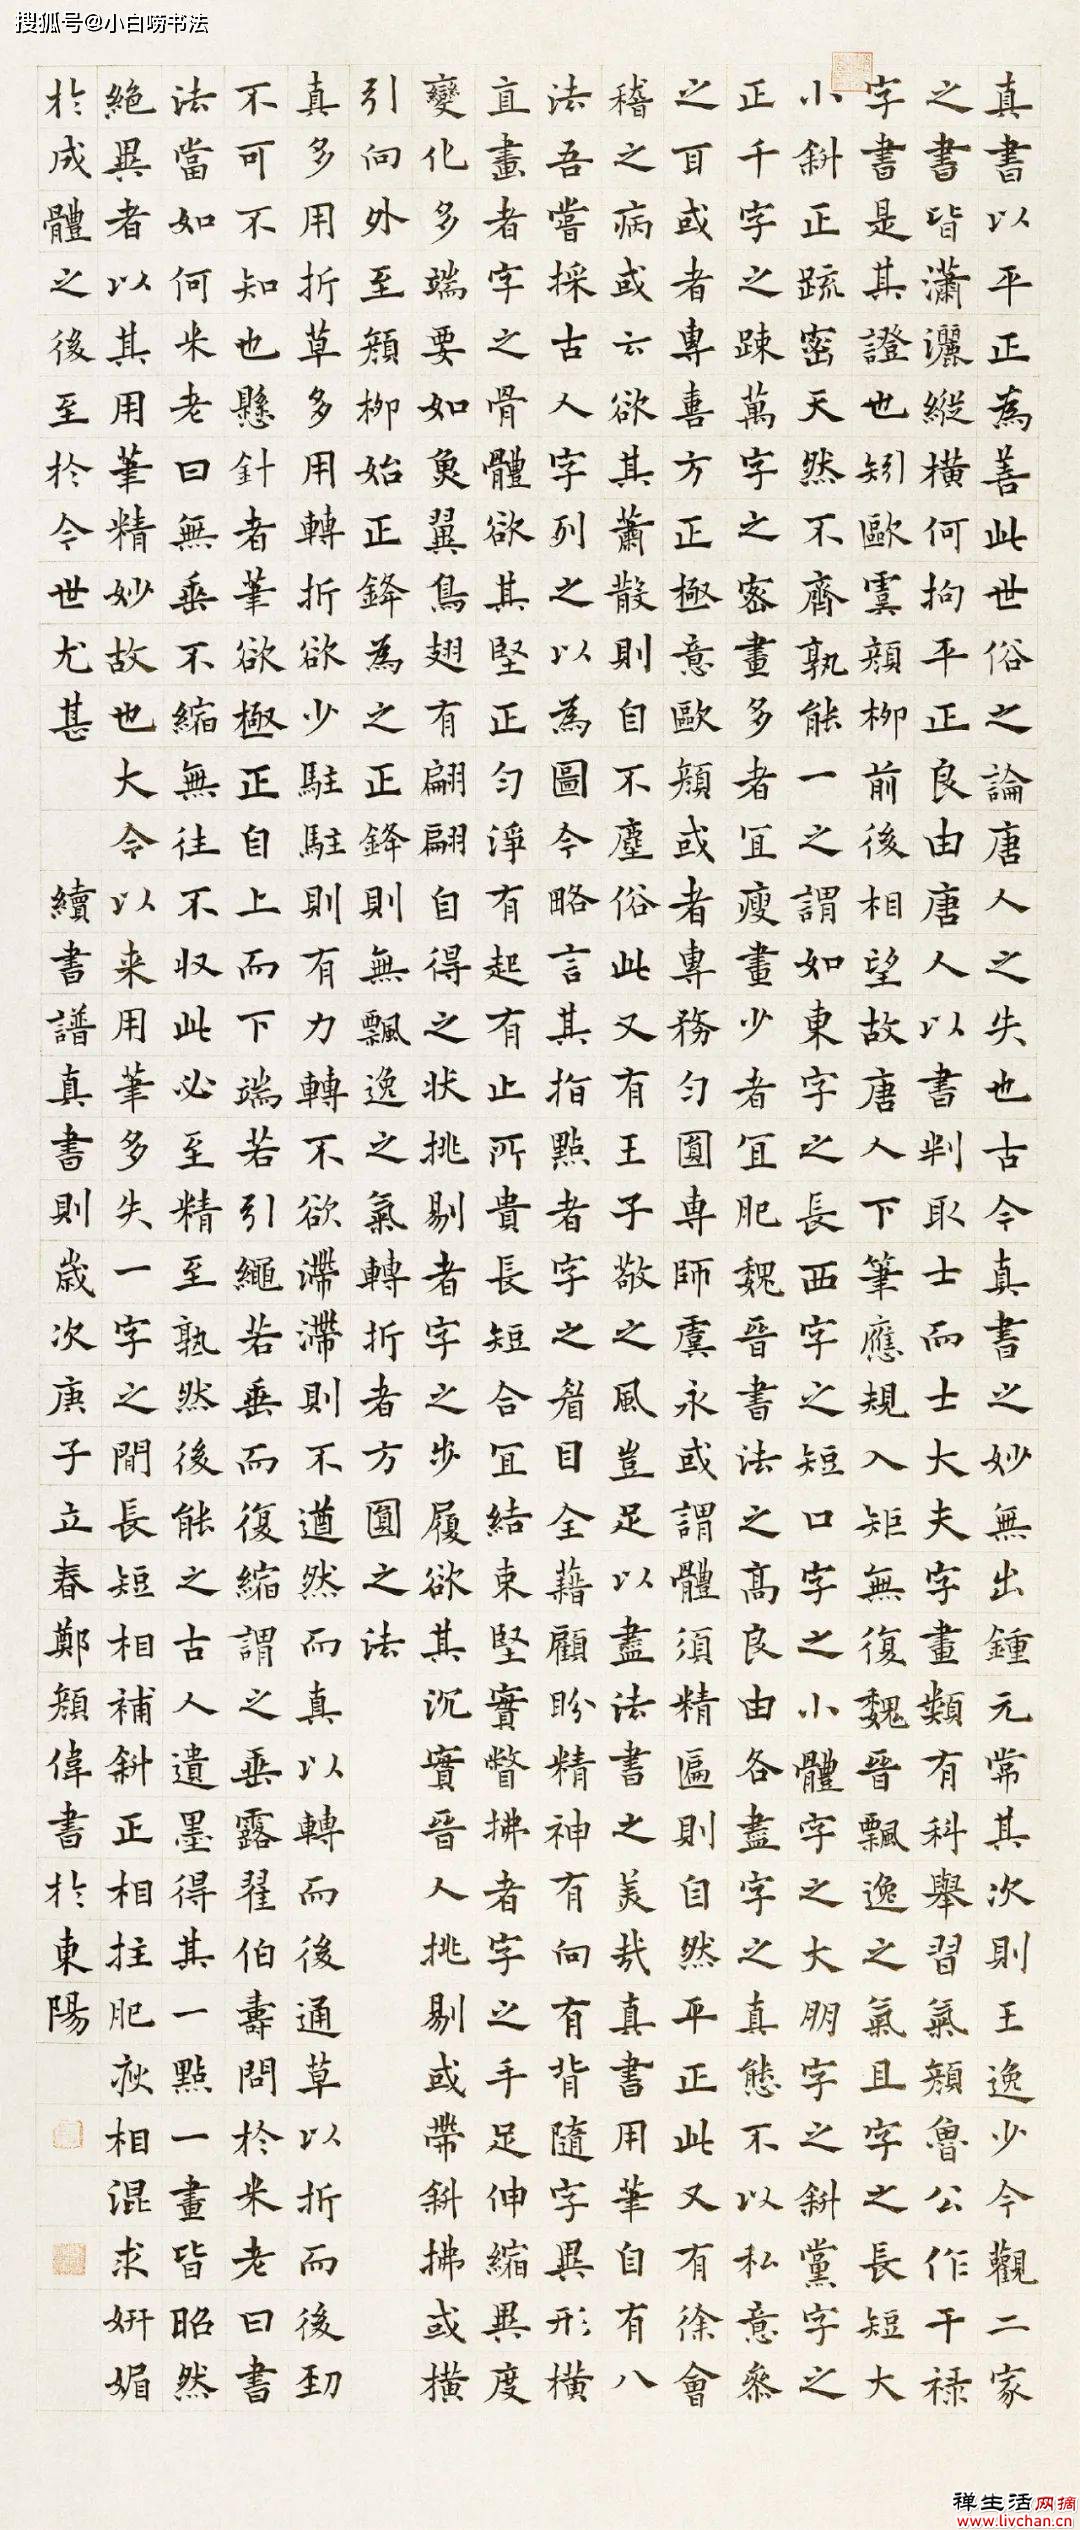 搜狐号@小白唠书法
真書以平正為善此世俗之論唐人之失也古今真書之妙無出鍾元常其次則王逸少今觀二家
之書皆瀟灑縱橫何拘平正良由唐人以書判取士而士大夫字畫類有科舉習氣顏魯公作干祿
字書是其證也矧歐虞顏柳前後相望故唐人下筆應規入矩無復魏晉飄逸之氣且字之長短大
小斜正疏密天然不齊孰能一之謂如東字之長西字之短口字之小體字之大朋字之斜黨字之
正千字之疎萬字之密畫多者宜瘦畫少者宜肥魏晉書法之高良由各盡字之真態不以私意參
之耳或者專喜方正極意歐顏或者專務勻圓專師虞永或謂體須精匾則自然平正此又有徐會
稽之病或云欲其蕭散則自不塵俗此又有王子敬之風豈足以盡法書之美哉真書用筆自有八
法吾嘗採古人字列之以為圖今略言其指點者字之眉目全藉顧盼精神有向有背隨字異形橫
直畫者字之骨體欲其堅正勻淨有起有止所貴長短合宜結束堅實瞥拂者字之手足伸縮異度
變化多端要如魚翼鳥翅有翩翩自得之狀挑剔者字之步履欲其沉實晉人挑剔或帶斜拂或橫
引向外至顏柳始正鋒為之正鋒則無飄逸之氣轉折者方圓之法
真多用折草多用轉折欲少駐駐則有力轉不欲滯滯則不遒然而真以轉而後通草以折而後勁
不可不知也懸針者筆欲極正自上而下端若引繩若垂而復縮謂之垂露翟伯壽問於米老曰書
法當如何米老曰無垂不縮無往不收此必至精至熟然後能之古人遺墨得其一點一畫皆昭然
絕異者以其用筆精妙故也大令以來用筆多失一字之間長短相補斜正相拄肥瘦相混求妍媚
於成體之後至於今世尤甚 續書譜真書則歲次庚子立春鄭顏偉書於東陽
禅生活网摘
www.livchan.cn